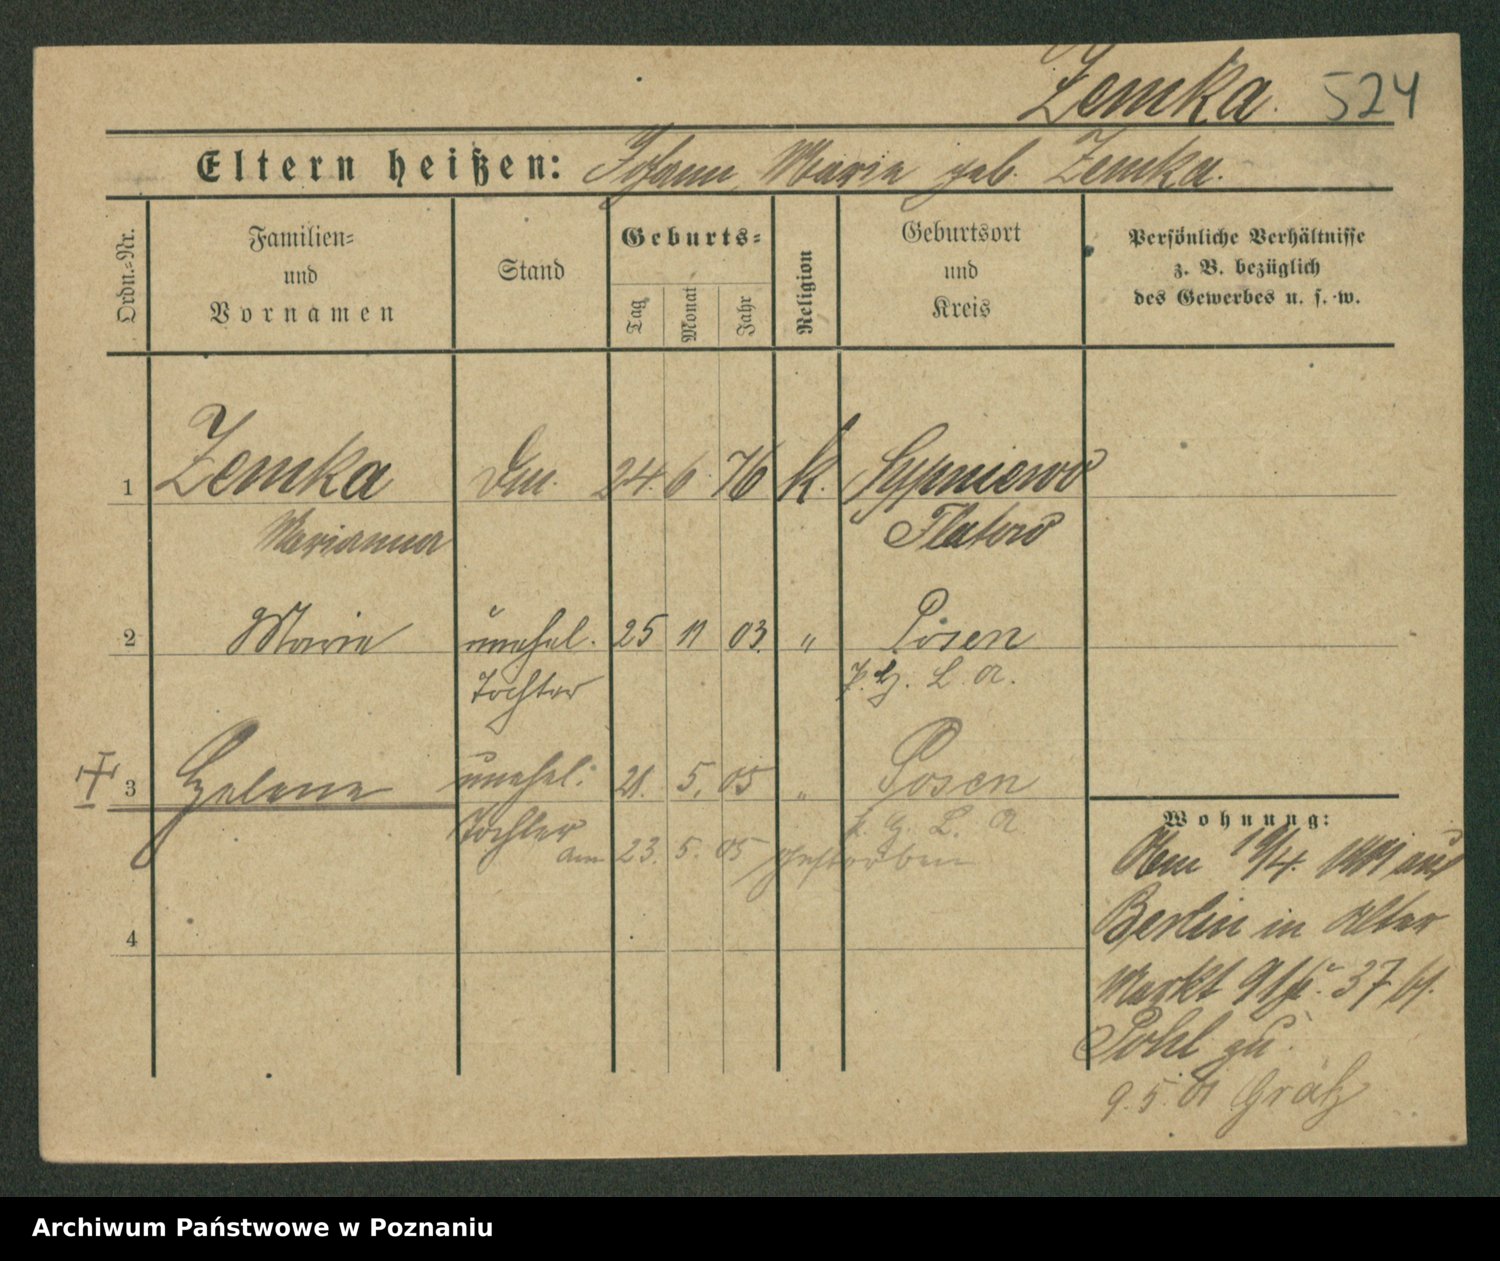 Zemka. 524
Eltern heißen: Johann, Maria geb. Zemka.
Ordn.-Nr.
Familien-
und
Vornamen
Stand
Geburts-
Tag
Monat
Jahr
Religion
Geburtsort
und
Kreis
Persönliche Verhältnisse
z. B. bezüglich
des Gewerbes u. s. w.
1 Zemka 24. 6. 76 k. Sypniewo
Marianna Flatow
2 Marie unehel. 25 11 03. " Posen
Tochter L. A.
3 Helene unehel. 21. 5. 05 " Posen
Tochter L. A.
am 23. 5. 05 gestorben
4
Wohnung:
Berlin in Alter
Markt 37
Pohl zu.
9. 5. 01 Grätz
Archiwum Państwowe w Poznaniu